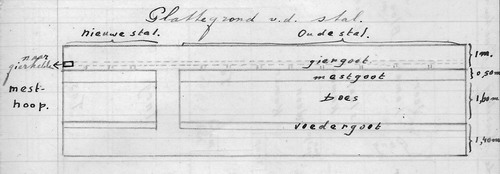 Plattegrond v.d. stal.
nieuwe stal. Oude stal.
naar
gierkelder
giergoot
1 m.
mestgoot
0,50 m
mest-
hoop.
boes
1,80 m
voedergoot
1,40 m